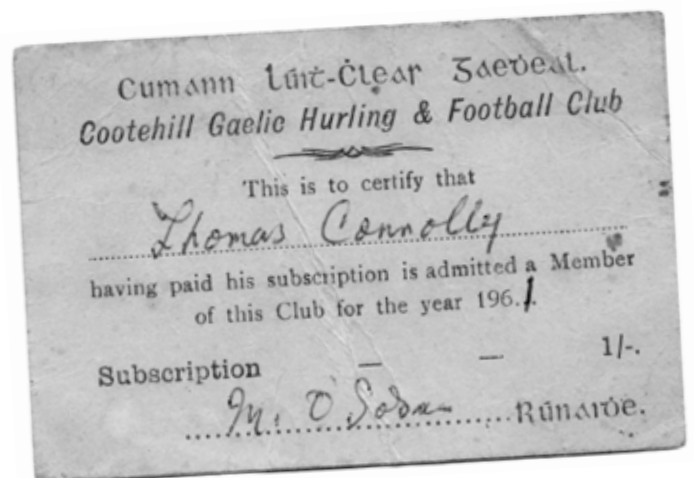 Cumann Lúiṫ-Ċleas Gaeḋeal.
Cootehill Gaelic Hurling & Football Club
This is to certify that
Thomas Connolly
having paid his subscription is admitted a Member
of this Club for the year 196.1.
Subscription — — 1/-.
M. O Rúnaiḋe.